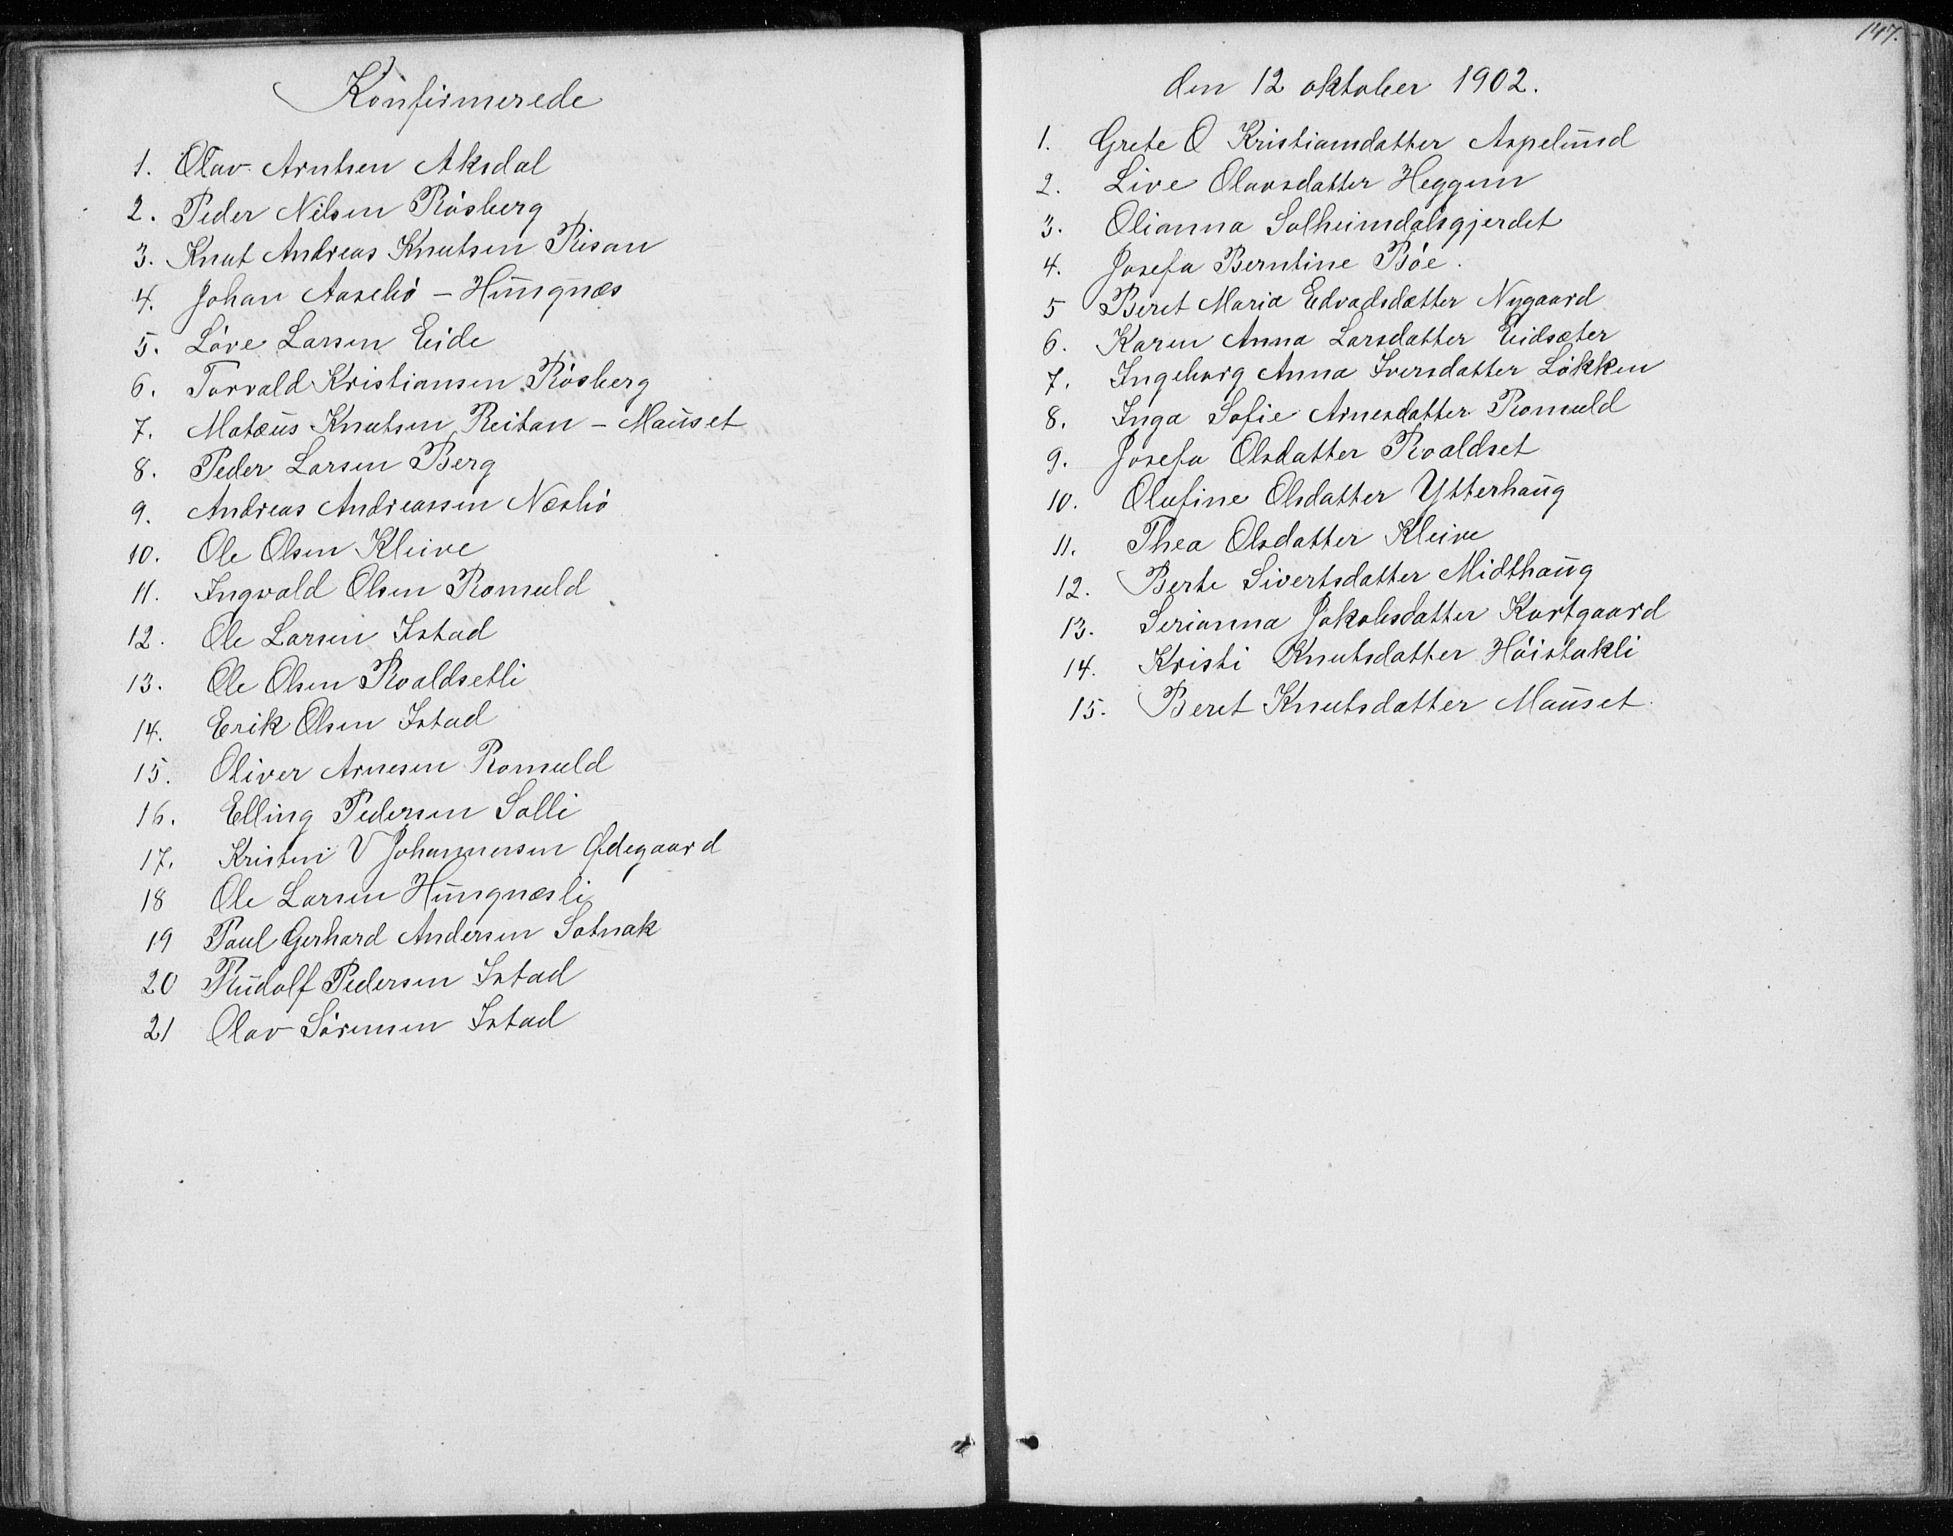 Konfirmerede
1. Olav Arntsen Aksdal
2. Peder Nilsen Røsberg
3. Knut Andreas Knutsen Risan
4. Johan Aasebø - Hungnæs
5. Løve Larsen Eide
6. Torvald Kristiansen Røsberg
7. Matæus Knutsen Reitan - Mauset
8. Peder Larsen Berg
9. Andreas Andreassen Næsbø
10. Ole Olsen Kleive
11. Ingvald Olsen Romuld
12. Ole Larsen Istad
13. Ole Olsen Roaldsetli
14. Erik Olsen Istad
15. Oliver Arnesen Romuld
16. Elling Pedersen Solli
17. Kristen V Johannesen Ødegaard
18 Ole Larsen Hungnæsli
19 Paul Gerhard Andersen Sotnak
20 Rudolf Pedersen Istad
21 Olav Sørensen Istad
147.
den 12 oktober 1902.
1. Grete O Kristiansdatter Aspelund
2. Live Olavsdatter Heggem
3. Olianna Solheimdalsgjerdet
4. Josefa Berntine Bøe.
5 Beret Maria Edvadsdatter Nygaard
6. Karen Anna Larsdatter Eidsæter
7. Ingeborg Anna Iversdatter Løkken
8. Inga Sofie Arnesdatter Romuld
9. Josefa Olsdatter Roaldset
10. Olufine Olsdatter Ytterhaug
11. Thea Olsdatter Kleive
12. Berte Sivertsdatter Midthaug
13. Serianna Jakobsdatter Kortgaard
14. Kristi Knutsdatter Høistakli
15. Beret Knutsdatter Mauset.